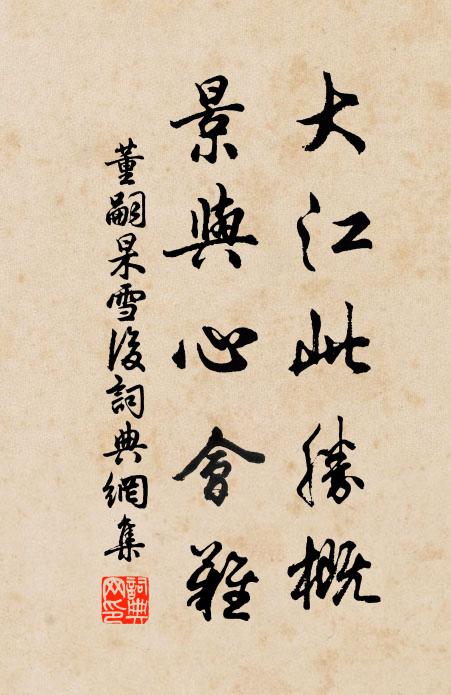 大江此勝概
景與心會難
董嗣杲雪後詞典網集
詞典网印